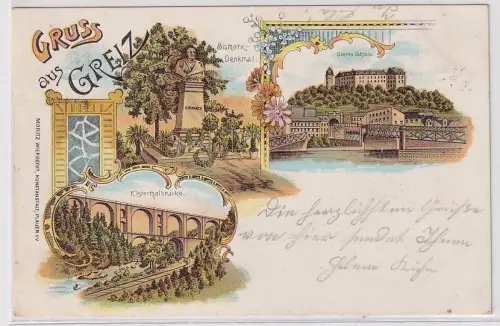 GRUSS
aus GREIZ
Bismark-
Denkmal.
Oberes Schloss.
BISMARCK
Elsterthalbrücke.
MORITZ WILFFERT, KUNSTANSTALT, PLAUEN i/V
Die herzlichsten Grüße
von hier sendet Ihnen
Helene